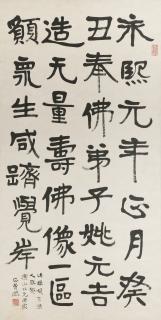 永熙元年正月癸
丑奉佛弟子姚元吉
造无量壽佛像一區
願眾生咸躋覺岸